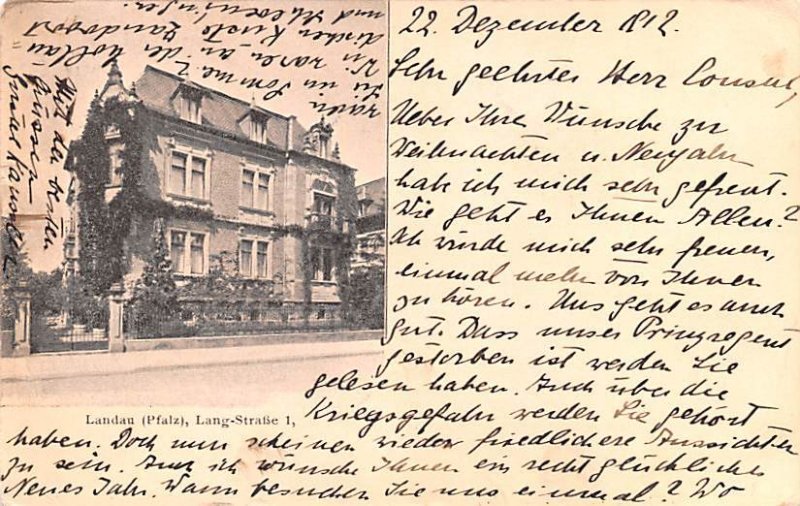 22. Dezember 1912.
Sehr geehrter Herr Consul,
Ueber Ihre Wünsche zu
Weihnachten u. Neujahr
habe ich mich sehr gefreut.
Wie geht es Ihnen Allen?
Ich würde mich sehr freuen,
einmal mehr von Ihnen
zu hören. Uns geht es auch
gut. Dass unser Prinzregent
gestorben ist werden Sie
gelesen haben. Auch über die
Kriegsgefahr werden Sie gehört
haben. Doch nun scheinen wieder friedlichere Aussichten
zu sein. Auch ich wünsche Ihnen ein recht glückliches
Neues Jahr. Wann besuchen Sie uns einmal? Wo
Landau (Pfalz), Lang-Straße 1,
waren Sie im Sommer?
Wir waren an der
dischen Küste Zandvoort
und
Mit den besten
Grüssen